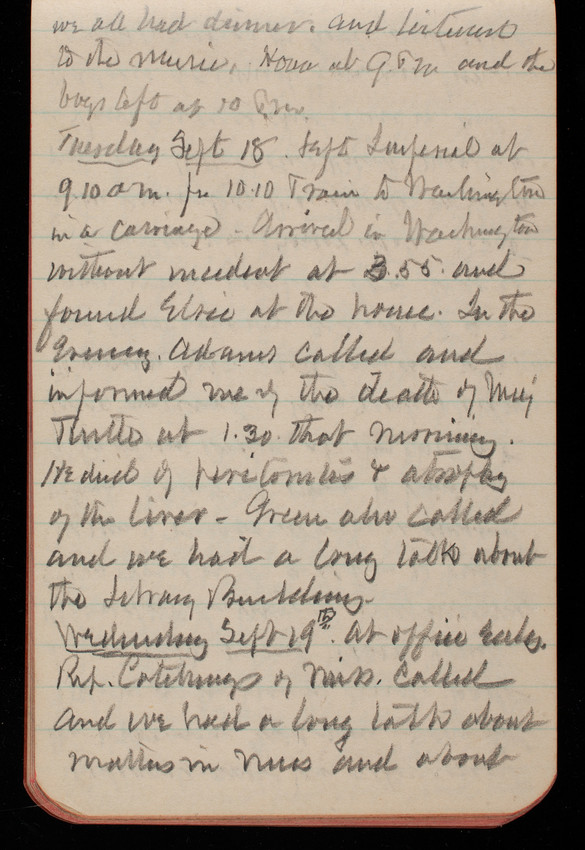 we all had dinner. and listened
to the music. Hoxa at 9 P.m and the
boys left at 10 P.m.
Tuesday Sept 18. Left Imperial at
9.10 a.m. for 10.10 Train to Washington
in a carriage - Arrived in Washington
without incident at 3.55 and
found Elsie at the house. In the
Evening. Adams called and
informed me of the death of Maj
Tuttle at 1.30 that morning.
He died of peritonitis & atrophy
of the liver - Green also called
and we had a long talk about
the Library Building.
Wednesday Sept 19th. At office early.
Rep. Catchings of Miss. Called
and we had a long talk about
matters in Miss and about